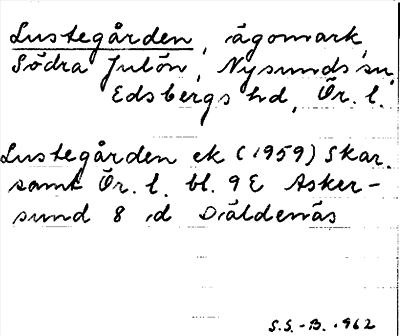 Lustegården, ägomark,
Södra Julön, Nysunds sn,
Edsbergs hd, Ör. l.
Lustegården ek (1959) Skar.
samt Ör. l. bl. 9 E Asker-
sund 8 d
S.S.-B. 1962